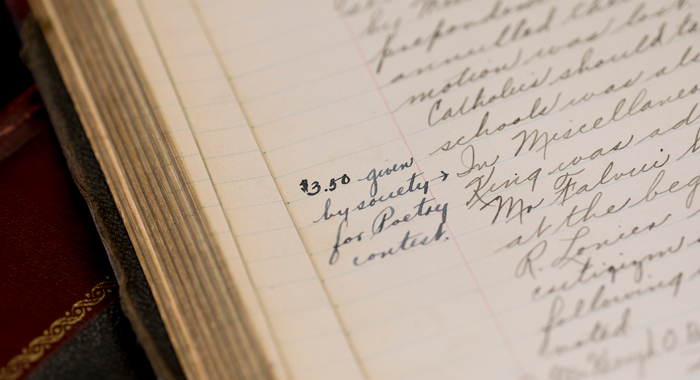 by
preponder
annulled the
motion was lost
Catholics should
schools was al
In Miscellaneo
King was ad
Mr Falvii
at the beg
R. Lonier
critizizm
following
noted
$3.50 given
by society →
for Poetry
contest.